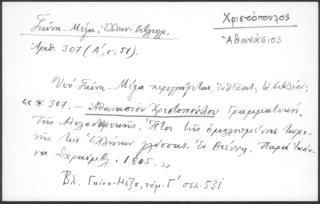 Γκίνη - Μέξα, Ἑλλην. Βιβλιογρ.
Χριστόπουλος
Ἀθανάσιος
Ἀριθ. 307 (Α', σ. 51).
Ὑπὸ Γκίνη - Μέξα περιγράφεται, τὸ βιβλίον:
« * 307. - Ἀθανασίου Χριστοπούλου Γραμματικὴ
τῆς Αἰολοδωρικῆς, Ἤτοι τῆς ὁμιλουμένης τωρι-
νῆς τῶν Ἑλλήνων γλώσσας. Ἐν Βιέννῃ. Παρὰ Ἰωάν-
να Σχραίμβλ. 1805. »
Βλ. Γκίνη - Μέξα, τόμ. Γ' σελ. 531